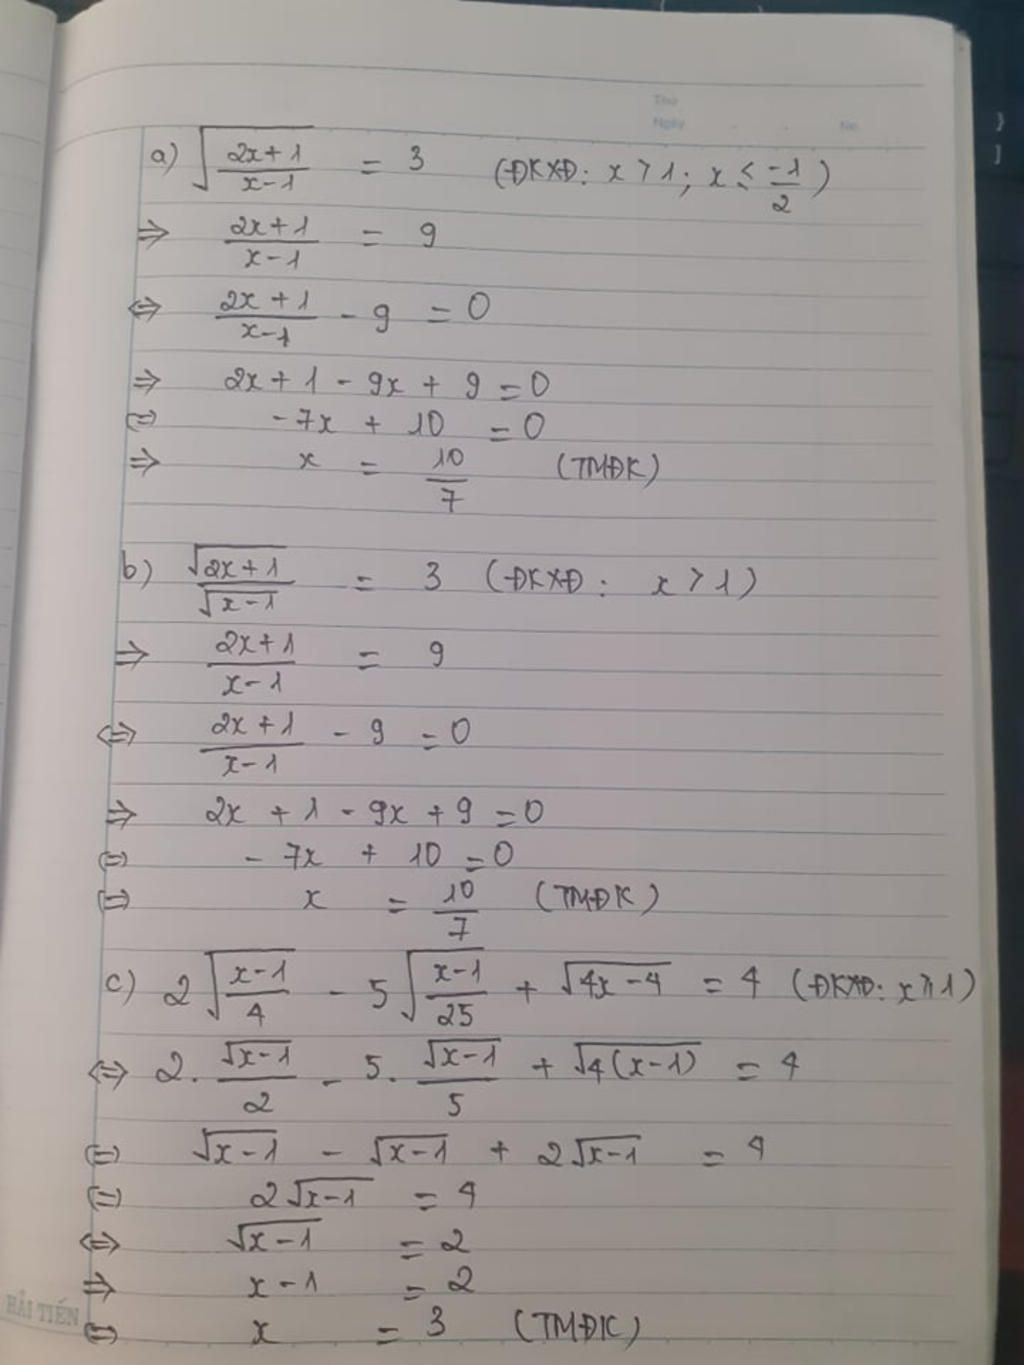 Thứ
Ngày . . No.
a) √((2x+1)/(x-1)) = 3 (ĐKXĐ: x > 1; x ≤ -1/2)
⇒ (2x+1)/(x-1) = 9
⇔ (2x+1)/(x-1) - 9 = 0
⇒ 2x + 1 - 9x + 9 = 0
⇔ -7x + 10 = 0
⇒ x = 10/7 (TMĐK)
b) √(2x+1)/√(x-1) = 3 (ĐKXĐ: x > 1)
⇒ (2x+1)/(x-1) = 9
⇔ (2x+1)/(x-1) - 9 = 0
⇒ 2x + 1 - 9x + 9 = 0
⇔ -7x + 10 = 0
⇔ x = 10/7 (TMĐK)
c) 2√((x-1)/4) - 5√((x-1)/25) + √(4x-4) = 4 (ĐKXĐ: x ≥ 1)
⇔ 2. √(x-1)/2 - 5. √(x-1)/5 + √(4(x-1)) = 4
⇔ √(x-1) - √(x-1) + 2√(x-1) = 4
⇔ 2√(x-1) = 4
⇔ √(x-1) = 2
⇒ x - 1 = 2
⇔ x = 3 (TMĐK)
HẢI TIẾN